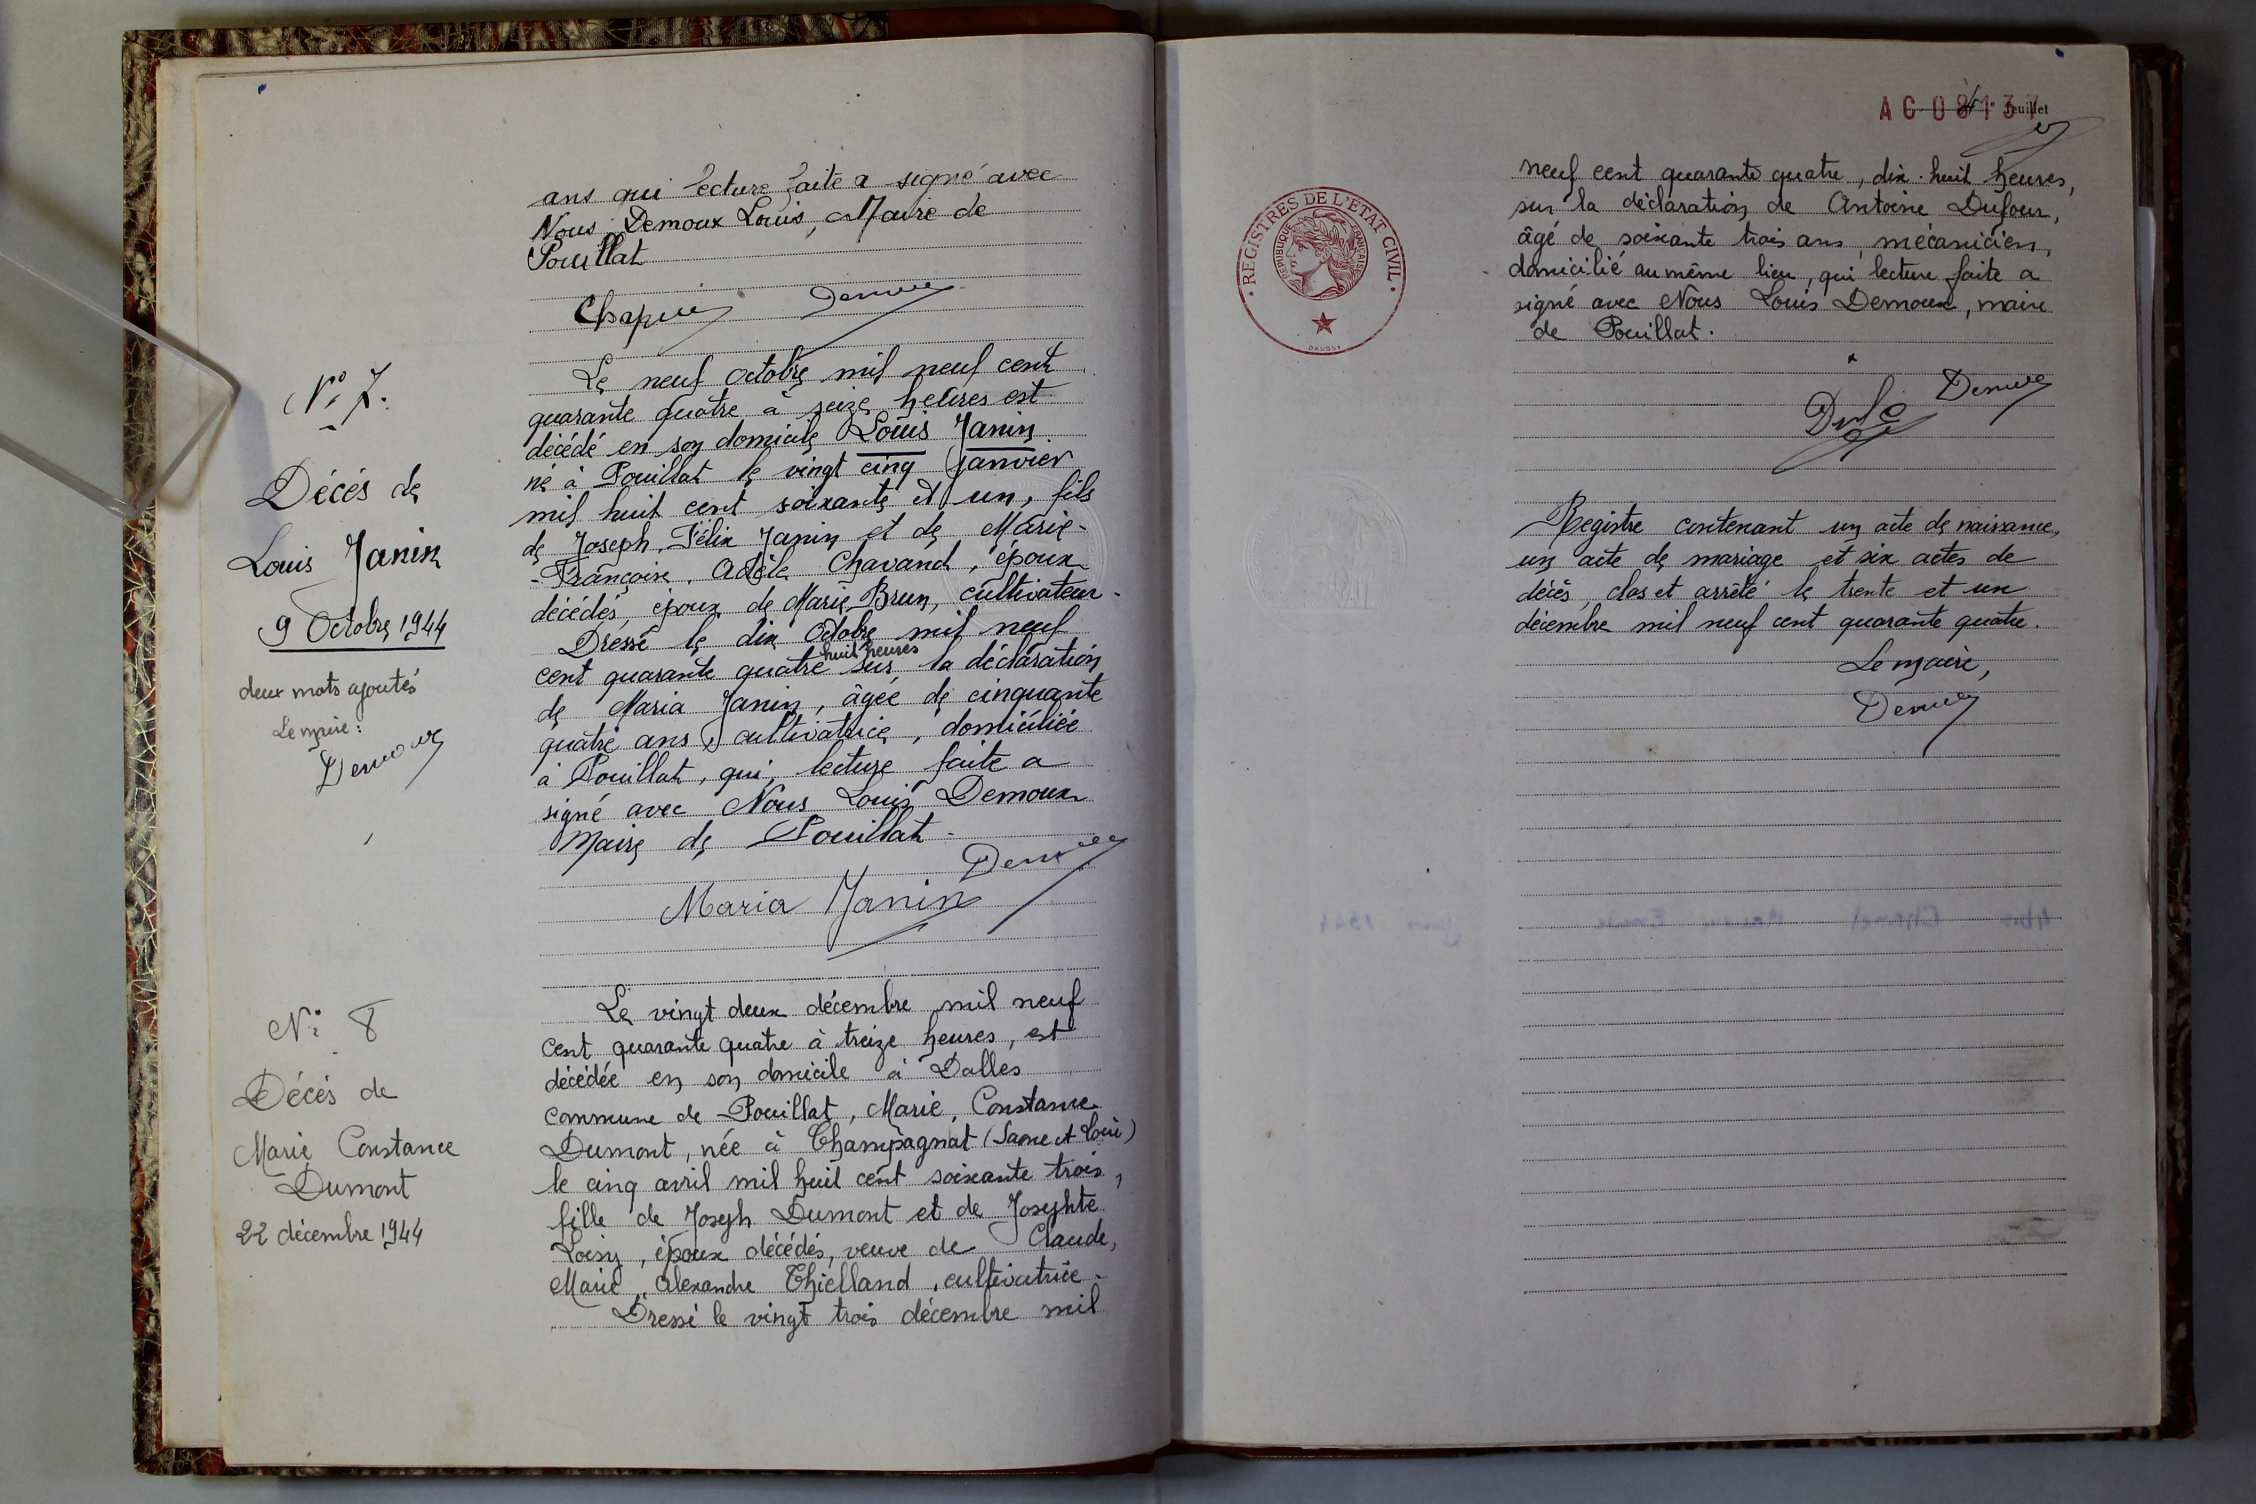 ans qui lecture faite a signé avec
Nous Demoux Louis, Maire de
Pouillat
Chapuis Demoux
N° 7.
Décés de
Louis Janin
9 Octobre 1944
deux mots ajoutés
Le maire:
Demoux
Le neuf octobre mil neuf cent
quarante quatre à seize heures est
décédé en son domicile Louis Janin
né à Pouillat le vingt cinq janvier
mil huit cent soixante et un, fils
de Joseph, Félix Janin et de Marie-
-Françoise, Adèle Chavand, époux
décédés, époux de Marie Brun, cultivateur.
Dressé le dix Octobre mil neuf
huit heures
cent quarante quatre sur la déclaration
de Maria Janin, âgée de cinquante
quatre ans, cultivatrice, domiciliée
à Pouillat, qui, lecture faite a
signé avec Nous Louis Demoux
Maire de Pouillat.
Demoux
Maria Janin
N° 8
Décés de
Marie Constance
Dumont
22 décembre 1944
Le vingt deux décembre mil neuf
cent quarante quatre à treize heures, est
décédée en son domicile à Dalles
commune de Pouillat, Marie, Constance
Dumont, née à Champagnat (Saone et Loire)
le cinq avril mil huit cent soixante trois,
fille de Joseph Dumont et de Josephte
Loisy, époux décédés, veuve de Claude,
Marie, Alexandre Thielland, cultivatrice.
Dressé le vingt trois décembre mil
AC 08137
feuillet
REGISTRES DE L'ETAT CIVIL
REPUBLIQUE FRANÇAISE
neuf cent quarante quatre, dix-huit heures,
sur la déclaration de Antoine Dufour,
âgé de soixante trois ans, mécanicien,
domicilié au même lieu, qui lecture faite a
signé avec Nous Louis Demoux, maire
de Pouillat.
Demoux
Registre contenant un acte de naissance,
un acte de mariage et six actes de
décès, clos et arrêté le trente et un
décembre mil neuf cent quarante quatre.
Le maire,
Demoux